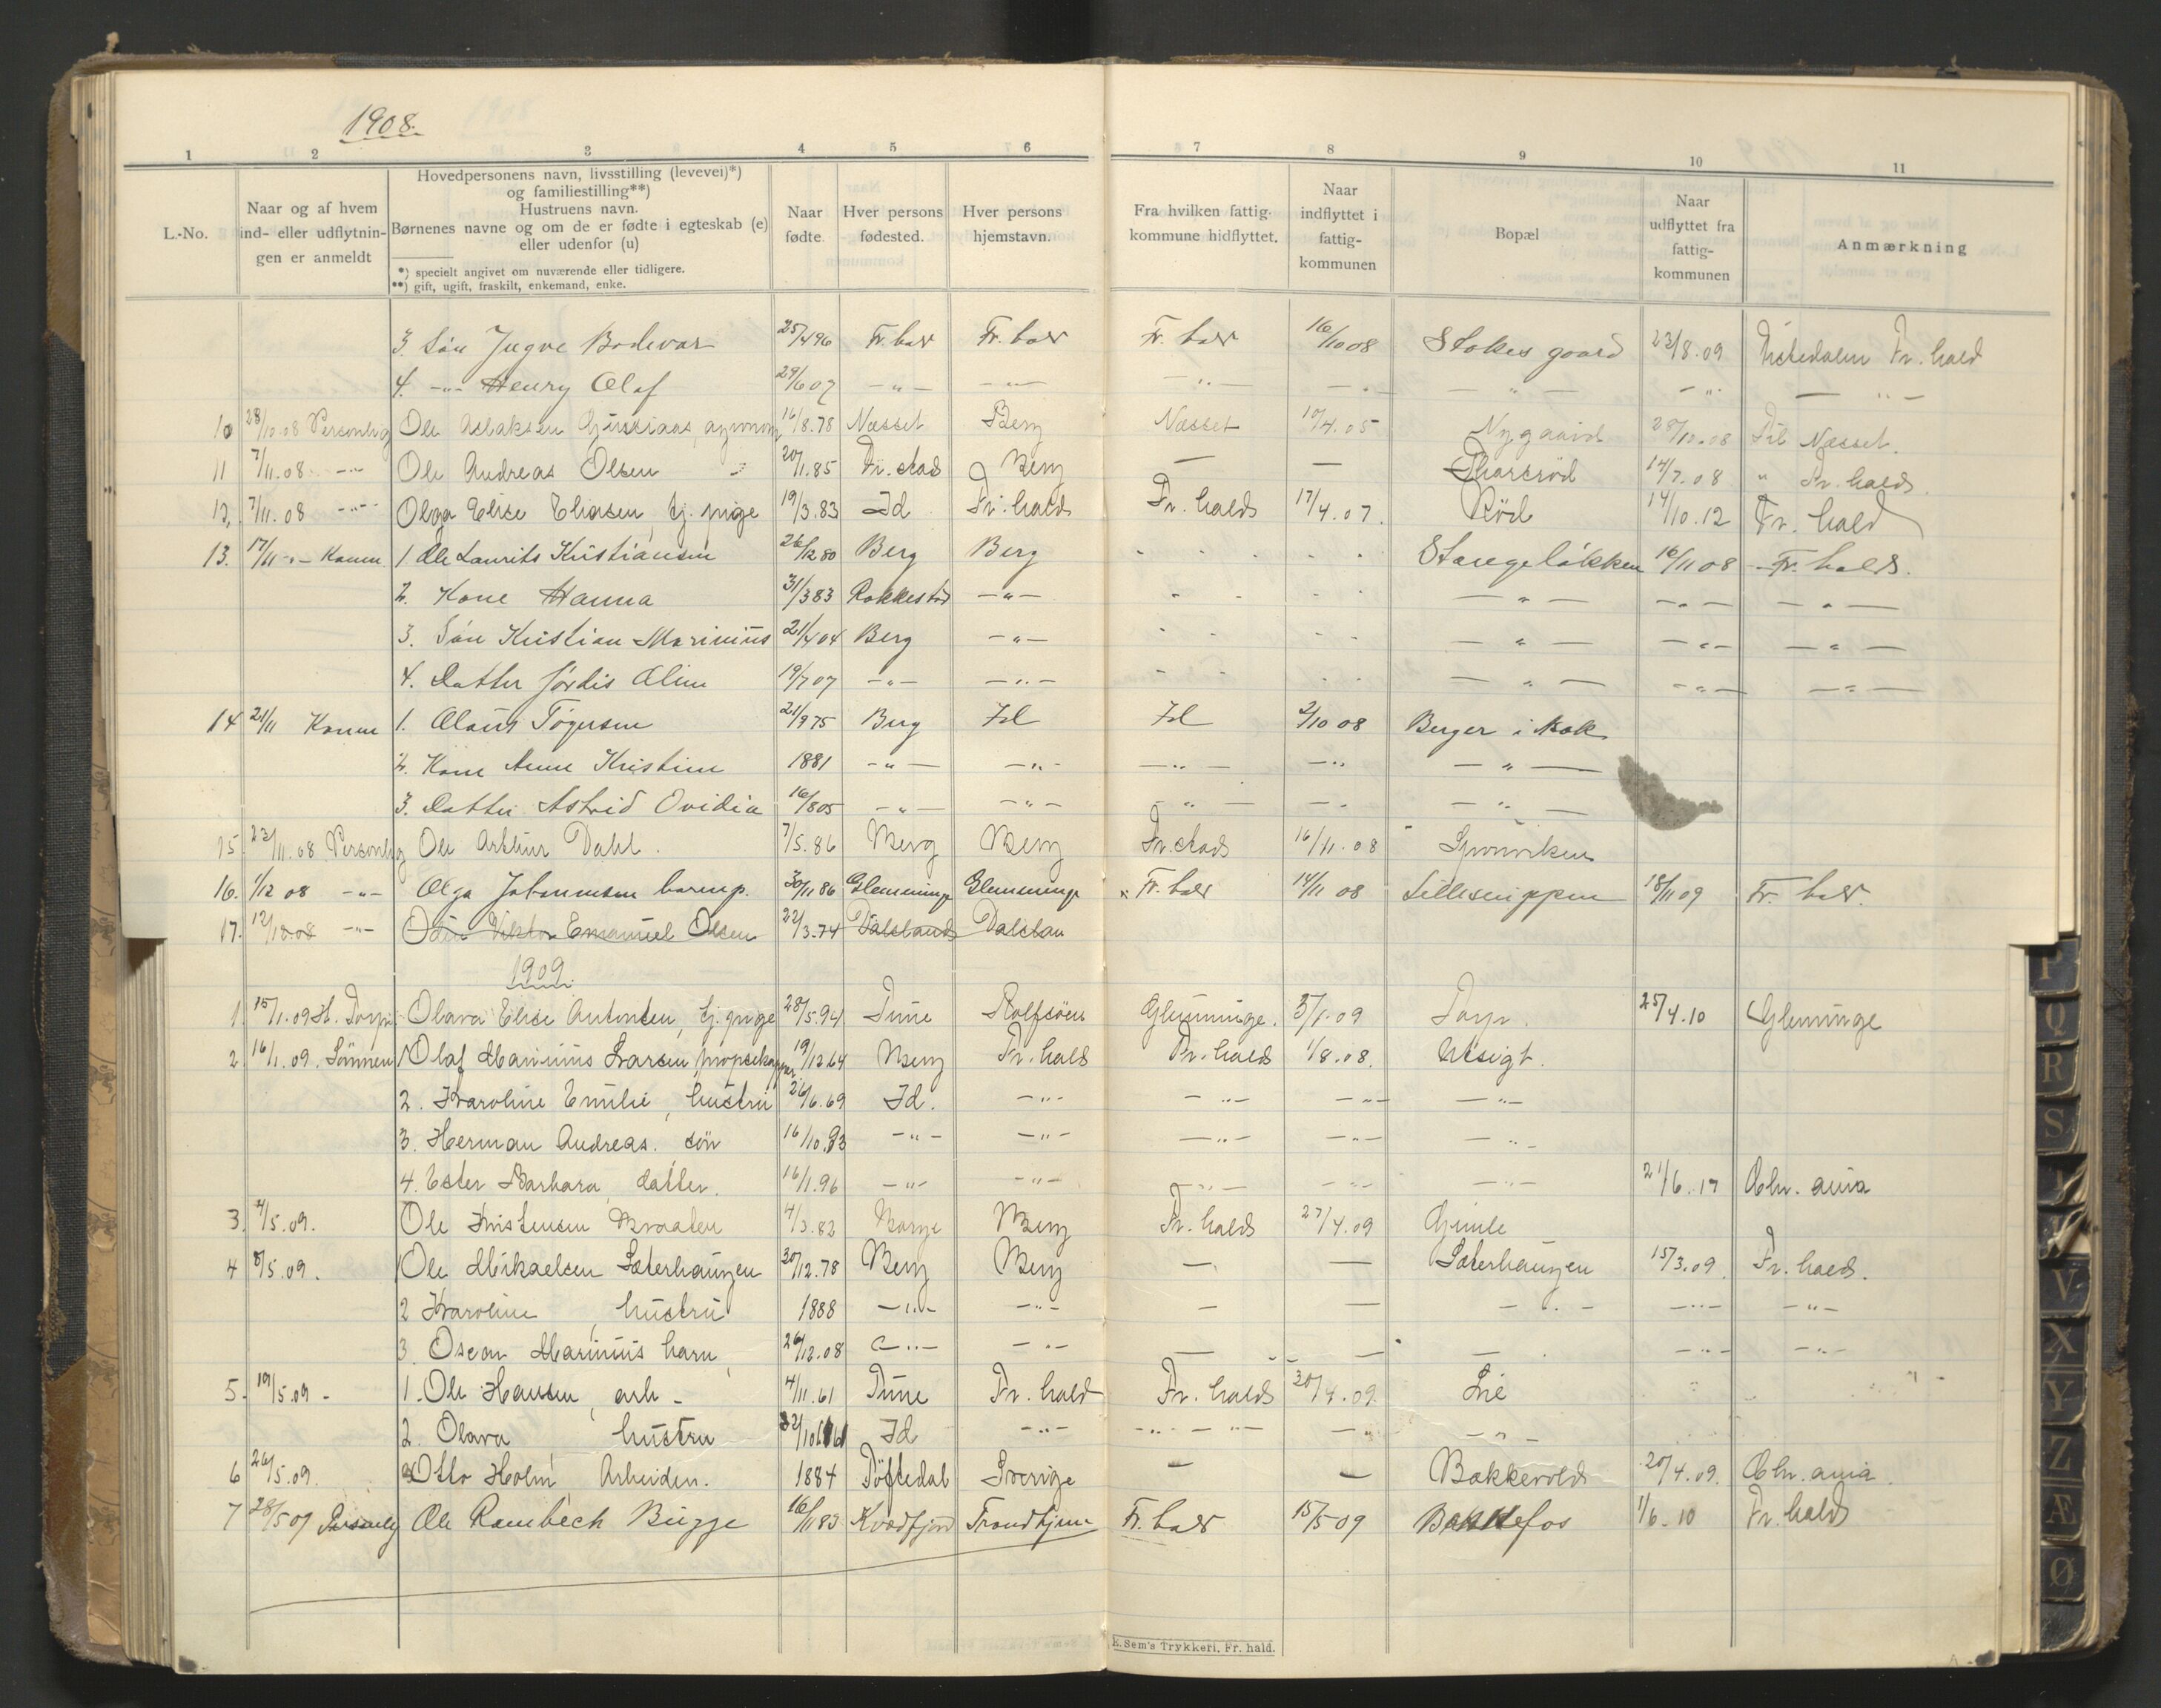 1908.
1 2 3 4 5 6 7 8 9 10 11
L.-No.
Naar og af hvem ind- eller udflytnin-gen er anmeldt
Hovedpersonens navn, livsstilling (levevei)*)
og familiestilling**)
Hustruens navn.
Børnenes navne og om de er fødte i egteskab (e)
eller udenfor (u)
*) specielt angivet om nuværende eller tidligere.
**) gift, ugift, fraskilt, enkemand, enke.
Naar fødte
Hver persons fødested.
Hver persons hjemstavn.
Fra hvilken fattig-kommune hidflyttet.
Naar indflyttet i fattig-kommunen
Bopæl
Naar udflyttet fra fattig-kommunen
Anmærkning
3. Søn Yngve Bodevar 25/4 96 Fr. hald Fr. hald Fr. hald 16/10 08 Stokes gaard 23/8.09 Fr. hald
4. -"- Henry Olaf 29/6 07 -"- -"- -"- -"- -"- -"- -"-
10 28/10.08 Personlig Ole Aslaksen agronom 16/8.78 Nesset Berg Nesset 10/4.05 Nygaard 28/10.08 Til Nesset.
11 7/11.08 -"- Ole Andreas Olsen 20/11.85 Fr. stad Berg — — 14/7.08 " Fr. hald
12. 7/11.08 -"- Olga Elise Eliasen, tj. pige 19/3.83 Id Fr. hald Fr. hald 17/4.07. Rød 14/10.12 Fr. hald
13. 17/11 -"- Konen 1. Ole Laurits Kristiansen 26/12 80 Berg Berg - - - - - Stangeløkken 16/11 08 Fr. hald.
2. Kone Hanna 31/3 83 Rakkestad -"- - - - - -"- -"- -"-
3. Søn Kristian Marinius 21/4 04 Berg -"- - - - - -"- -"- -"-
4. Datter Jordis Oline 19/7 07 -"- -"- - - - - -"- -"- -"-
14 21/11 Konen 1. Olaus Tøgersen 21/9 75 Berg Id Id 2/10 08 Berger i Rok
2. Kone Anne Kristine 1881 -"- -"- -"- -"- -"-
3. Datter Astrid Ovidia 16/8 05 -"- -"- -"- -"- -"-
15 23/11.08 Personlig Ole Arthur Dahl. 7/5.86 Berg Berg Fr. stad 16/11.08 Sponviken
16. 1/12 08 -"- Olga Johannesen barnep. 30/11 86 Glemminge Glemminge Fr. hald 14/11 08 Lillesnippen 18/11 09 Fr. hald.
17. 12/12.08 -"- Odin Viktor Emanuel Olsen 22/3.74 Dalsland Dalslan
1909.
1. 15/1.09 H. Torp. Olava Elise Antonsen, tj. pige 28/5.94 Tune Rolfsøen Glemminge. 5/1.09 Torp. 25/4.10 Glemminge
2. 16/1.09. Sønnen 1 Olaf Marinius Larsen, propsekapper 19/12.64 Berg Fr. hald Fr. hald 1/8.08. Utsigt.
2. Karoline Emilie, hustru 26/6.69 Id. -"- -"- -"- -"-
3. Herman Andreas. søn 16/10.93 -"- -"- -"- -"- -"-
4. Ester Barbara, datter. 16/1.96 -"- -"- -"- -"- -"- 21/6.17 Chr. ania
3. 4/5.09. Ole Kristensen Braaten 4/3.82 Borge Berg Fr. hald 27/4.09 Gimle
4 8/5.09. 1 Ole Mikaelsen Sæterhaugen 30/12.78 Berg Berg — — Sæterhaugen 15/3.09. Fr. hald.
2 Karoline, hustru 1888 -"- -"- — — -"- -"- -"-
3. Oscar Marinius barn, 26/12.08 -"- -"- — — — -"- -"-
5. 19/5.09 - 1. Ole Hansen, arb - 4/11.61 Tune Fr. hald Fr. hald 30/4.09. Lie
2. Olava hustru Id -"- -"- -"- -"-
6 26/5.09. Otto Holm, Arbeider. 1884 Töftedal Sverige — — Bakkevold 20/4.09. Chr. ania.
7 28/5 09 Personlig Ole Rambech Bugge 16/11 83 Kvædfjord Trondhjem Fr. hald 15/5 09 Bakkefos 1/6.10 Fr. hald
K. Sem's Trykkeri, Fr. hald.
P
Q
R
S
V
X
Y
Z
Æ
Ø